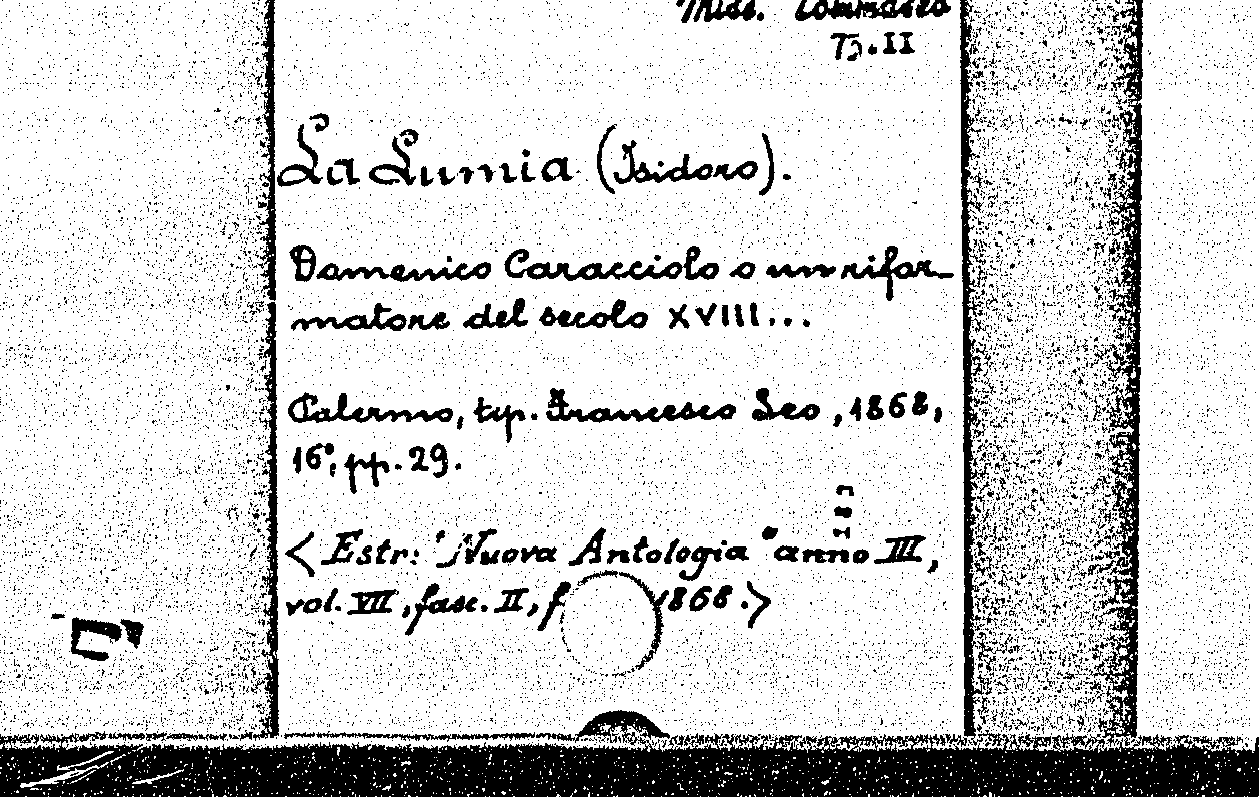 Misc. Tommaseo
B.II
La Lumia (Isidoro).
Domenico Caracciolo o un rifor-
matore del secolo XVIII...
Palermo, tip. Francesco Leo, 1868,
16°, pp. 29.
< Estr: "Nuova Antologia" anno III,
vol. VII, fasc. II, f 1868.>